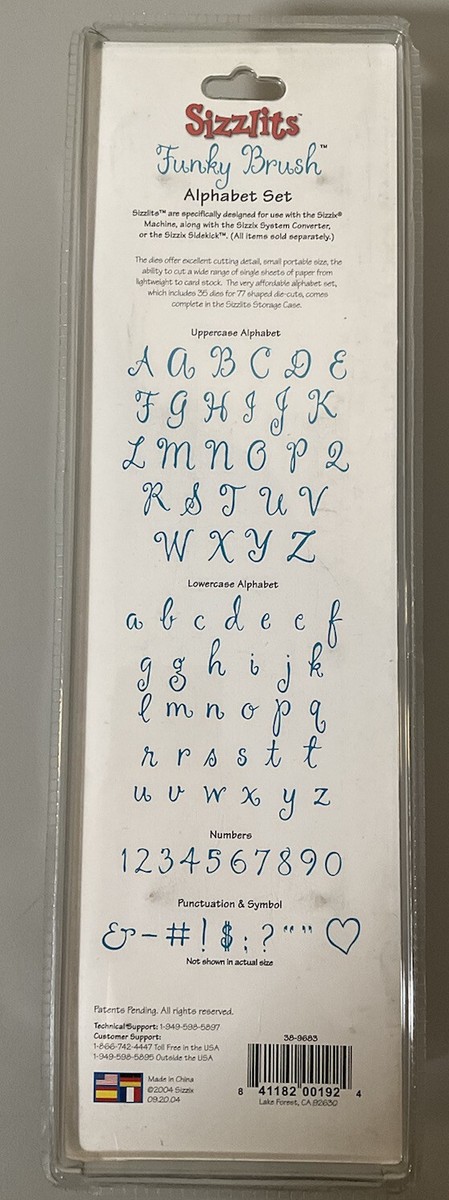 Sizzlits™
Funky Brush™
Alphabet Set
Sizzlits™ are specifically designed for use with the Sizzix®
Machine, along with the Sizzix System Converter,
or the Sizzix Sidekick™. (All items sold separately.)
The dies offer excellent cutting detail, small portable size, the
ability to cut a wide range of single sheets of paper from
lightweight to card stock. The very affordable alphabet set,
which includes 35 dies for 77 shaped die-cuts, comes
complete in the Sizzlits Storage Case.
Uppercase Alphabet
A A B C D E
F G H I J K
L M N O P Q
R S T U V
W X Y Z
Lowercase Alphabet
a b c d e e f
g g h i j k
l m n o p q
r r s s t t
u v w x y z
Numbers
1 2 3 4 5 6 7 8 9 0
Punctuation & Symbol
& - # ! $ ; ? “ ” ♡
Not shown in actual size
Patents Pending. All rights reserved.
Technical Support: 1-949-598-5897
Customer Support:
1-866-742-4447 Toll Free in the USA
1-949-598-5895 Outside the USA
Made in China
©2004 Sizzix
09.20.04
38-9683
8 41182 00192 4
Lake Forest, CA 92630